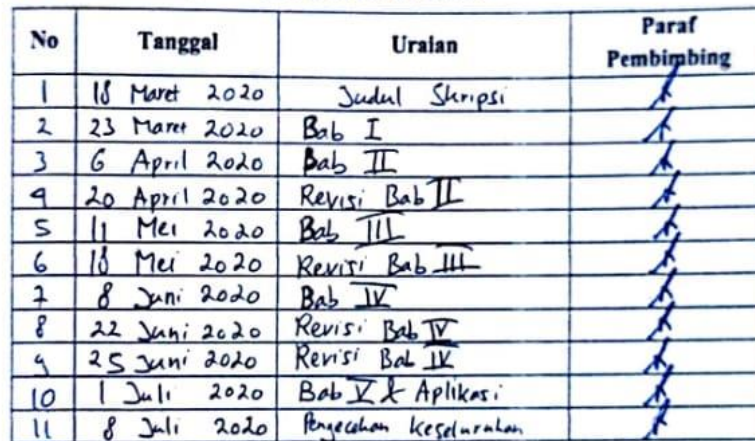 No Tanggal Uraian Paraf Pembimbing
1 18 Maret 2020 Judul Skripsi
2 23 Maret 2020 Bab I
3 6 April 2020 Bab II
4 20 April 2020 Revisi Bab II
5 11 Mei 2020 Bab III
6 18 Mei 2020 Revisi Bab III
7 8 Juni 2020 Bab IV
8 22 Juni 2020 Revisi Bab IV
9 25 Juni 2020 Revisi Bab IV
10 1 Juli 2020 Bab V & Aplikasi
11 8 Juli 2020 Pengecekan Keseluruhan